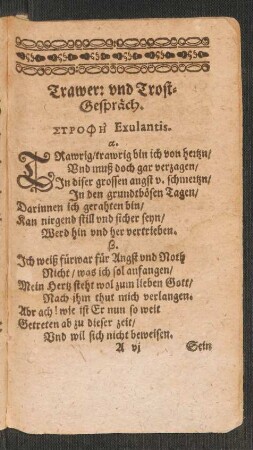 Trawer: vnd Trost-
Gespräch.
ΣΤΡΟΦΗ Exulantis.
α.
TRawrig/trawrig bin ich von hertzn/
Vnd muß doch gar verzagen/
In diser grossen angst v. schmertzn/
In den grundtbösen Tagen/
Darinnen ich gerahten bin/
Kan nirgend still vnd sicher seyn/
Werd hin vnd her vertrieben.
β.
Ich weiß fürwar für Angst vnd Noth
Nicht/ was ich sol anfangen/
Mein Hertz steht wol zum lieben Gott/
Nach ihm thut mich verlangen.
Abr ach! wie ist Er nun so weit
Getreten ab zu dieser zeit/
Vnd wil sich nicht beweisen.
A vj Sein